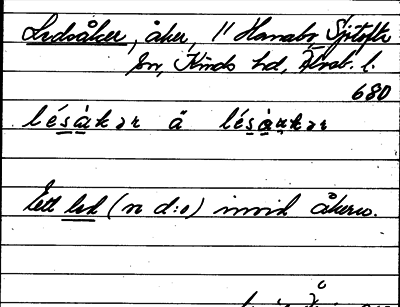 Ledsåker, åker, 11 Hanabo, Sjötofta
sn, Kinds hd, Älvsb. l.
680
lésàkər å lésàukər
Ett led (n d:o) invid åkern.